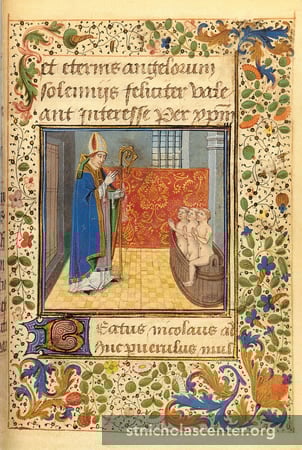 et eternis angelorum
solemnijs feliciter vale
ant interesse Per xpm
Beatus nicolaus ad
huc puerulus mul
stnicholascenter.org